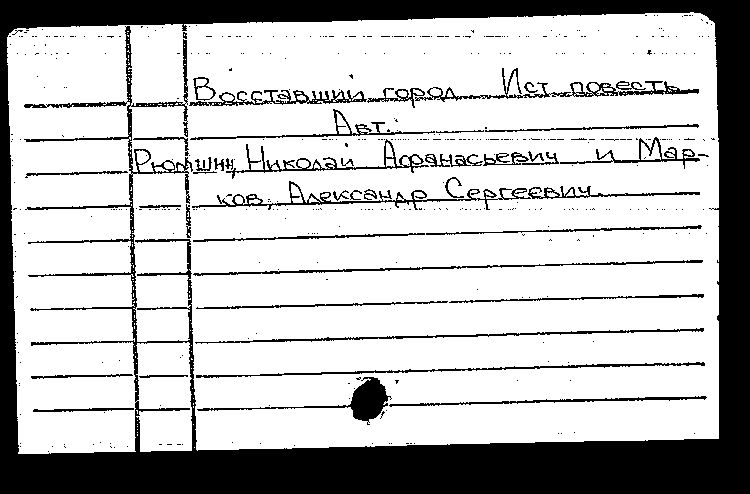 Восставший город Ист повесть
Авт.:
Рюмшин, Николай Афанасьевич и Мар-
ков, Александр Сергеевич.